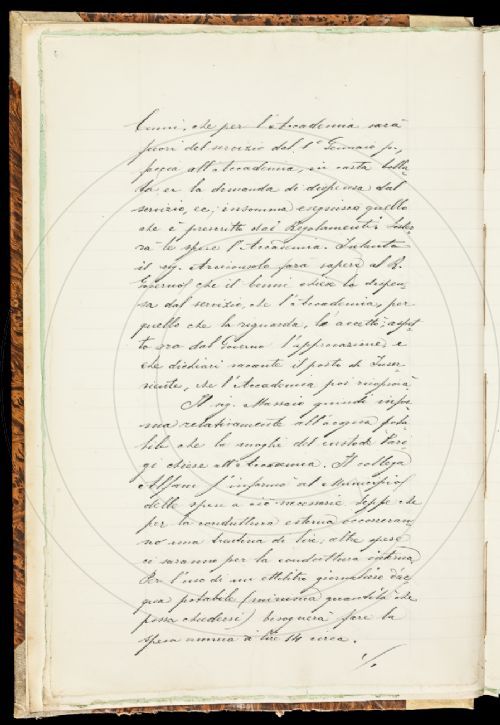 Cenni, che per l'Accademia sarà
fuori del servizio dal 1° Gennaio pr,
faccia all'Accademia, in carta bolla-
ta, la domanda di dispensa dal
servizio, ec; insomma eseguisca quello
che è prescritto dai Regolamenti. Soster-
rà le spese l'Accademia. Intanto
il sig. Arciconsolo farà sapere al R.
Governo che il Cenni chiede la dispen-
sa dal servizio, che l'Accademia, per
quello che la riguarda, la accetta, aspet-
ta ora dal Governo l'approvazione e
che dichiari vacante il posto di Inser-
viente, che l'Accademia poi ricoprirà
Il sig. Massaio quindi infor-
ma relativamente all'acqua pota-
bile che la moglie del custode
chiese all'Accademia. Il collega
Alfani s'informò al Municipio
delle spese a ciò necessarie. Seppe che
per la conduttura esterna occorreran-
no una trentina di lire; altre spese
ci saranno per la conduttura interna
Per l'uso di un ettolitro giornaliero d'ac-
qua potabile (minima quantità che
possa chiedersi) bisognerà fare la
spesa annua di lire 14 circa.
./.